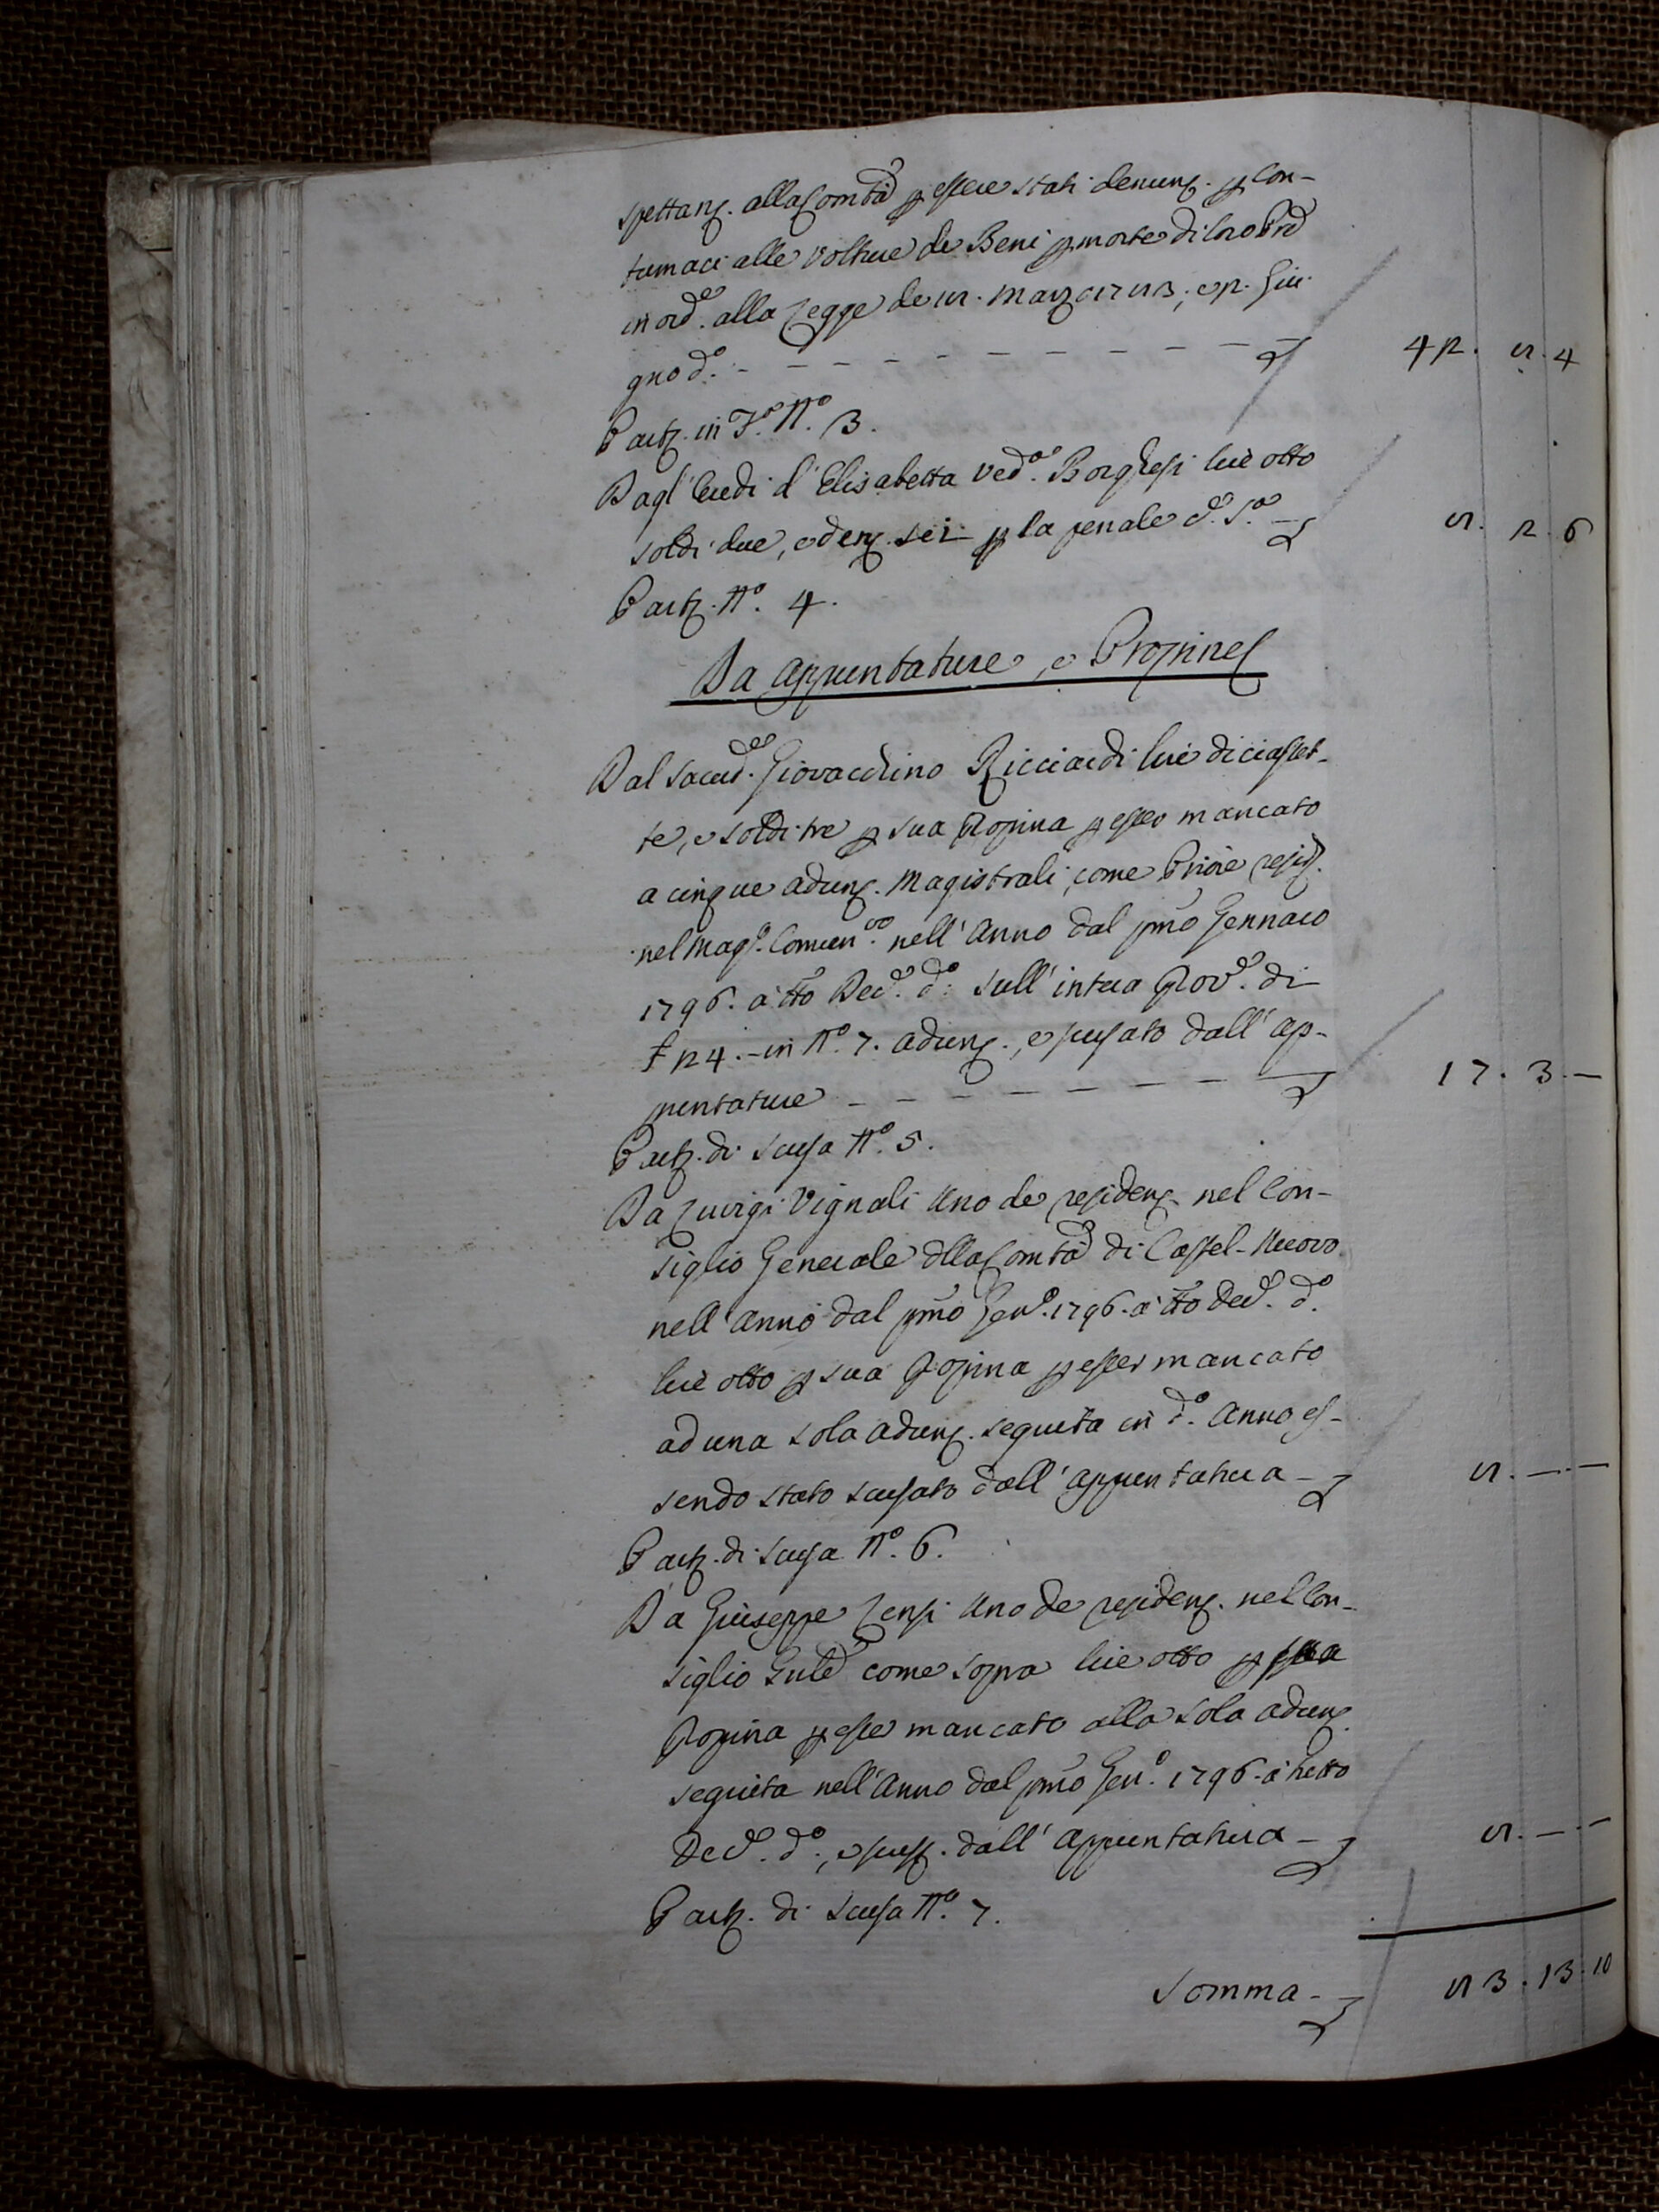 spettanz. alla Comtà p essere stati denunz. p con-
tumaci alle volture de Beni p morte di loro Prē
in ord.e alla Legge de 8. Marzo 1783; e 2. Giu-
gno d.o - - - - - - - - - 42. 8. 4
Partz. in F.o N.o 3.
Dagl'Eredi d'Elisabetta Ved.a Borghesi lire otto
soldi due, e denz. sei p la penale d.a S.a - 8. 2. 6
Partz. N.o 4.
Da Appuntature, e Propine
Dal Sacerd.e Giovacchino Ricciardi lire diciasset-
te, e soldi tre p sua Propina p esser mancato
a cinque adunz. Magistrali, come Priore resid.
nel Mag.o Comun.vo nell'Anno dal pmo Gennaro
1796. a tto Dec.e d.o sull'intera Prov.e di
£ 24. - in N.o 7. adunz., e scusato dall'ap-
puntature - - - - - - 17. 3. —
Partz. di scusa N.o 5.
Da Luigi Vignali Uno de residenz. nel Con-
siglio Generale dlla Comtà di Castel-Nuovo
nell'anno dal pmo Gen.o 1796. a tto Dec.e d.o
lire otto p sua Propina p esser mancato
ad una sola adunz. seguita in d.o Anno es-
sendo stato scusato dall'appuntatura - 8. —. —
Partz. di scusa N.o 6.
Da Giuseppe Lensi Uno de residenz. nel Con-
siglio Gnle come sopra lire otto p sua
Propina p esser mancato alla sola adunz.
seguita nell'Anno dal pmo Gen.o 1796. a tutto
Dec.e d.o, e scusz. dall'appuntatura - 8. —. —
Partz. di scusa N.o 7.
Somma - 83. 13. 10